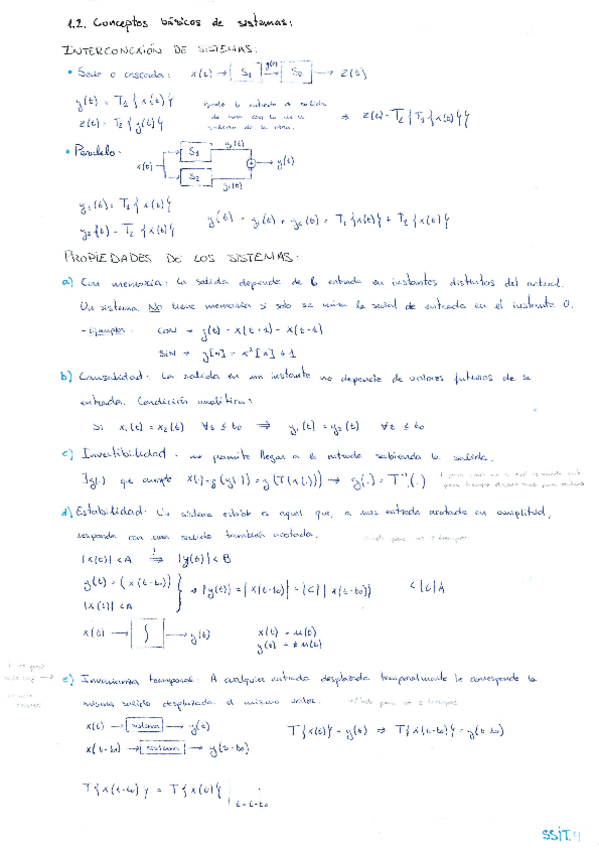 1.2. Conceptos básicos de sistemas:
INTERCONEXIÓN DE SISTEMAS:
• Serie o cascada: x(t) → [S₁] y(t) → [S₂] → z(t)
y(t) = T₁{x(t)}
z(t) = T₂{y(t)} ⇒ z(t) = T₂{T₁{x(t)}}
• Paralelo:
x(t) S₁ y₁(t) + → y(t)
S₂ y₂(t)
y₁(t) = T₁{x(t)}
y₂(t) = T₂{x(t)} y(t) = y₁(t) + y₂(t) = T₁{x(t)} + T₂{x(t)}
PROPIEDADES DE LOS SISTEMAS:
a) Con memoria: La salida depende de la entrada en instantes distintos del actual.
Un sistema NO tiene memoria si solo se mira la señal de entrada en el instante 0.
- Ejemplos: CON → y(t) = x(t+1) - x(t-1)
SIN → y[n] = x²[n] + 1
b) Causalidad: La salida en un instante no depende de valores futuros de la
entrada. Condición analítica:
Si x₁(t) = x₂(t) ∀t ≤ t₀ ⇒ y₁(t) = y₂(t) ∀t ≤ t₀
c) Invertibilidad: nos permite llegar a la entrada sabiendo la salida.
∃g(.) que cumple x(.) = g(y(.)) = g(T(x(.))) → g(.) = T⁻¹(.)
d) Estabilidad: Un sistema estable es aquel que, a una entrada acotada en amplitud,
responde con una salida también acotada.
|x(t)| < A ⇒ |y(t)| < B
y(t) = C x(t-t₀) } ⇒ |y(t)| = |C| |x(t-t₀)| < |C| A
|x(t)| < A
x(t) → [∫] → y(t) x(t) = u(t)
y(t) = t u(t)
e) Invarianza temporal: A cualquier entrada desplazada temporalmente le corresponde la
misma salida desplazada el mismo valor.
x(t) → [sistema] → y(t) T{x(t)} = y(t) ⇒ T{x(t-t₀)} = y(t-t₀)
x(t-t₀) → [sistema] → y(t-t₀)
T{x(t-t₀)} = T{x(t)}|
t=t-t₀
SSIT.4